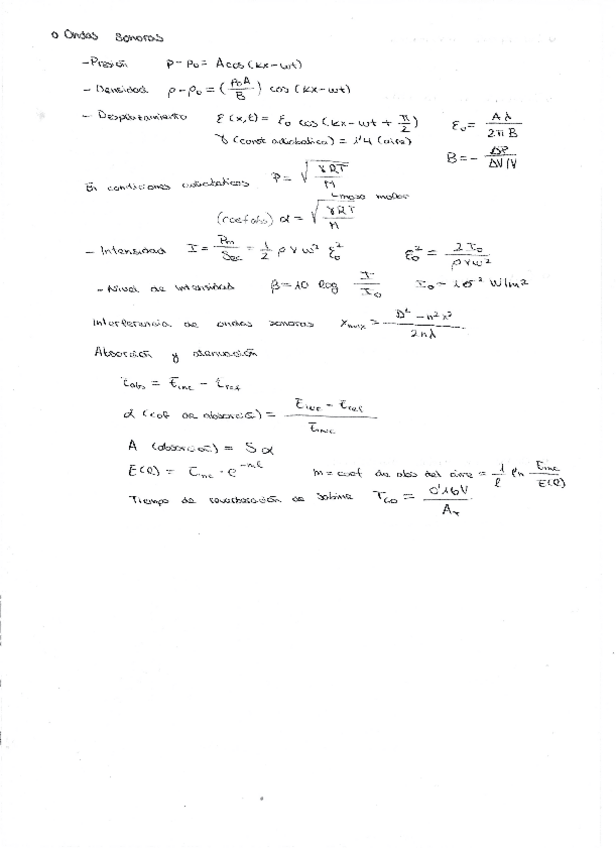 o Ondas sonoras
- Presión P - P₀ = A cos (kx - wt)
- Densidad ρ - ρ₀ = (ρ₀A / B) cos (kx - wt)
- Desplazamiento ε(x,t) = ε₀ cos (kx - wt + π/2) ε₀ = Aλ / 2πB
γ (const adiabatica) = 1'4 (aire) B = - ΔP / ΔV/V
En condiciones adiabaticas P = √(γRT / M)
masa molar
α = √(γRT / M)
- Intensidad I = Pm / Sec = 1/2 ρ v w² ε₀² ε₀² = 2I₀ / ρvw²
- Nivel de intensidad β = 10 log I / I₀ I₀ - W/m²
Interferencia de ondas sonoras xmax = D² - n²λ² / 2nλ
Absorción y atenuación
Eabs = Einc - Eref
α (cof de absorción) = Einc - Eref / Einc
A (absorción) = S α
E(l) = Einc · e^-ml m = coef de abs del aire = 1/l ln Einc / E(l)
Tiempo de reverberación de Sabine T₆₀ = 0'16V / A_T